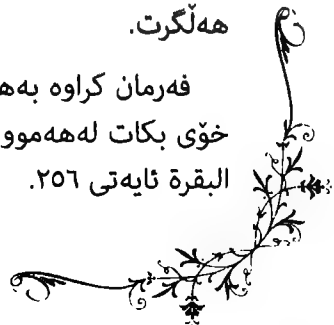 هەڵگرت.
فەرمان کراوە بەه
خۆی بکات لەهەموو
البقرة ئایەتی ٢٥٦.